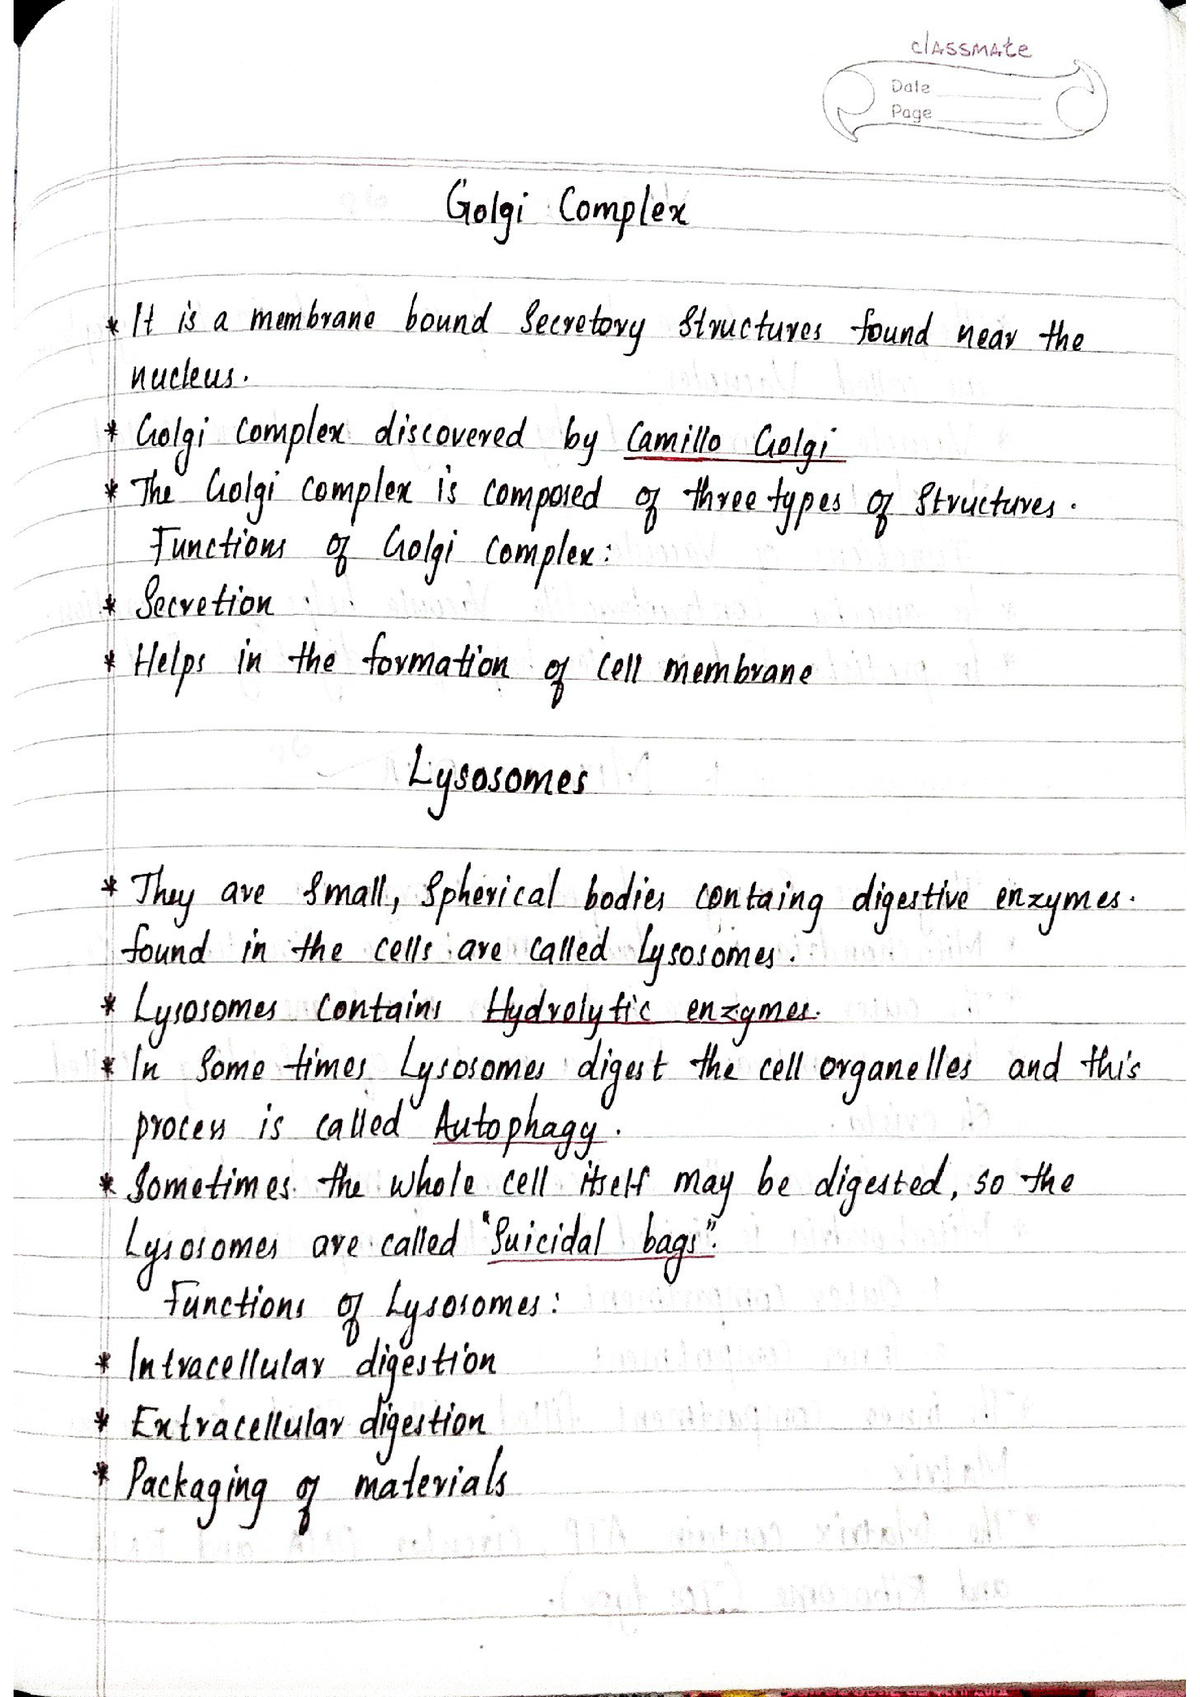 classmate
Date
Page
Golgi Complex
* It is a membrane bound Secretory Structures found near the
nucleus.
* Golgi complex discovered by Camillo Golgi
* The Golgi complex is composed of three types of Structures.
Functions of Golgi Complex:
* Secretion
* Helps in the formation of cell membrane
Lysosomes
* They are Small, Spherical bodies containg digestive enzymes.
found in the cells are called Lysosomes.
* Lysosomes contains Hydrolytic enzymes.
* In Some times Lysosomes digest the cell organelles and this
process is called Autophagy.
* Sometimes the whole cell itself may be digested, so the
Lysosomes are called "Suicidal bags".
Functions of Lysosomes:
* Intracellular digestion
* Extracellular digestion
* Packaging of materials